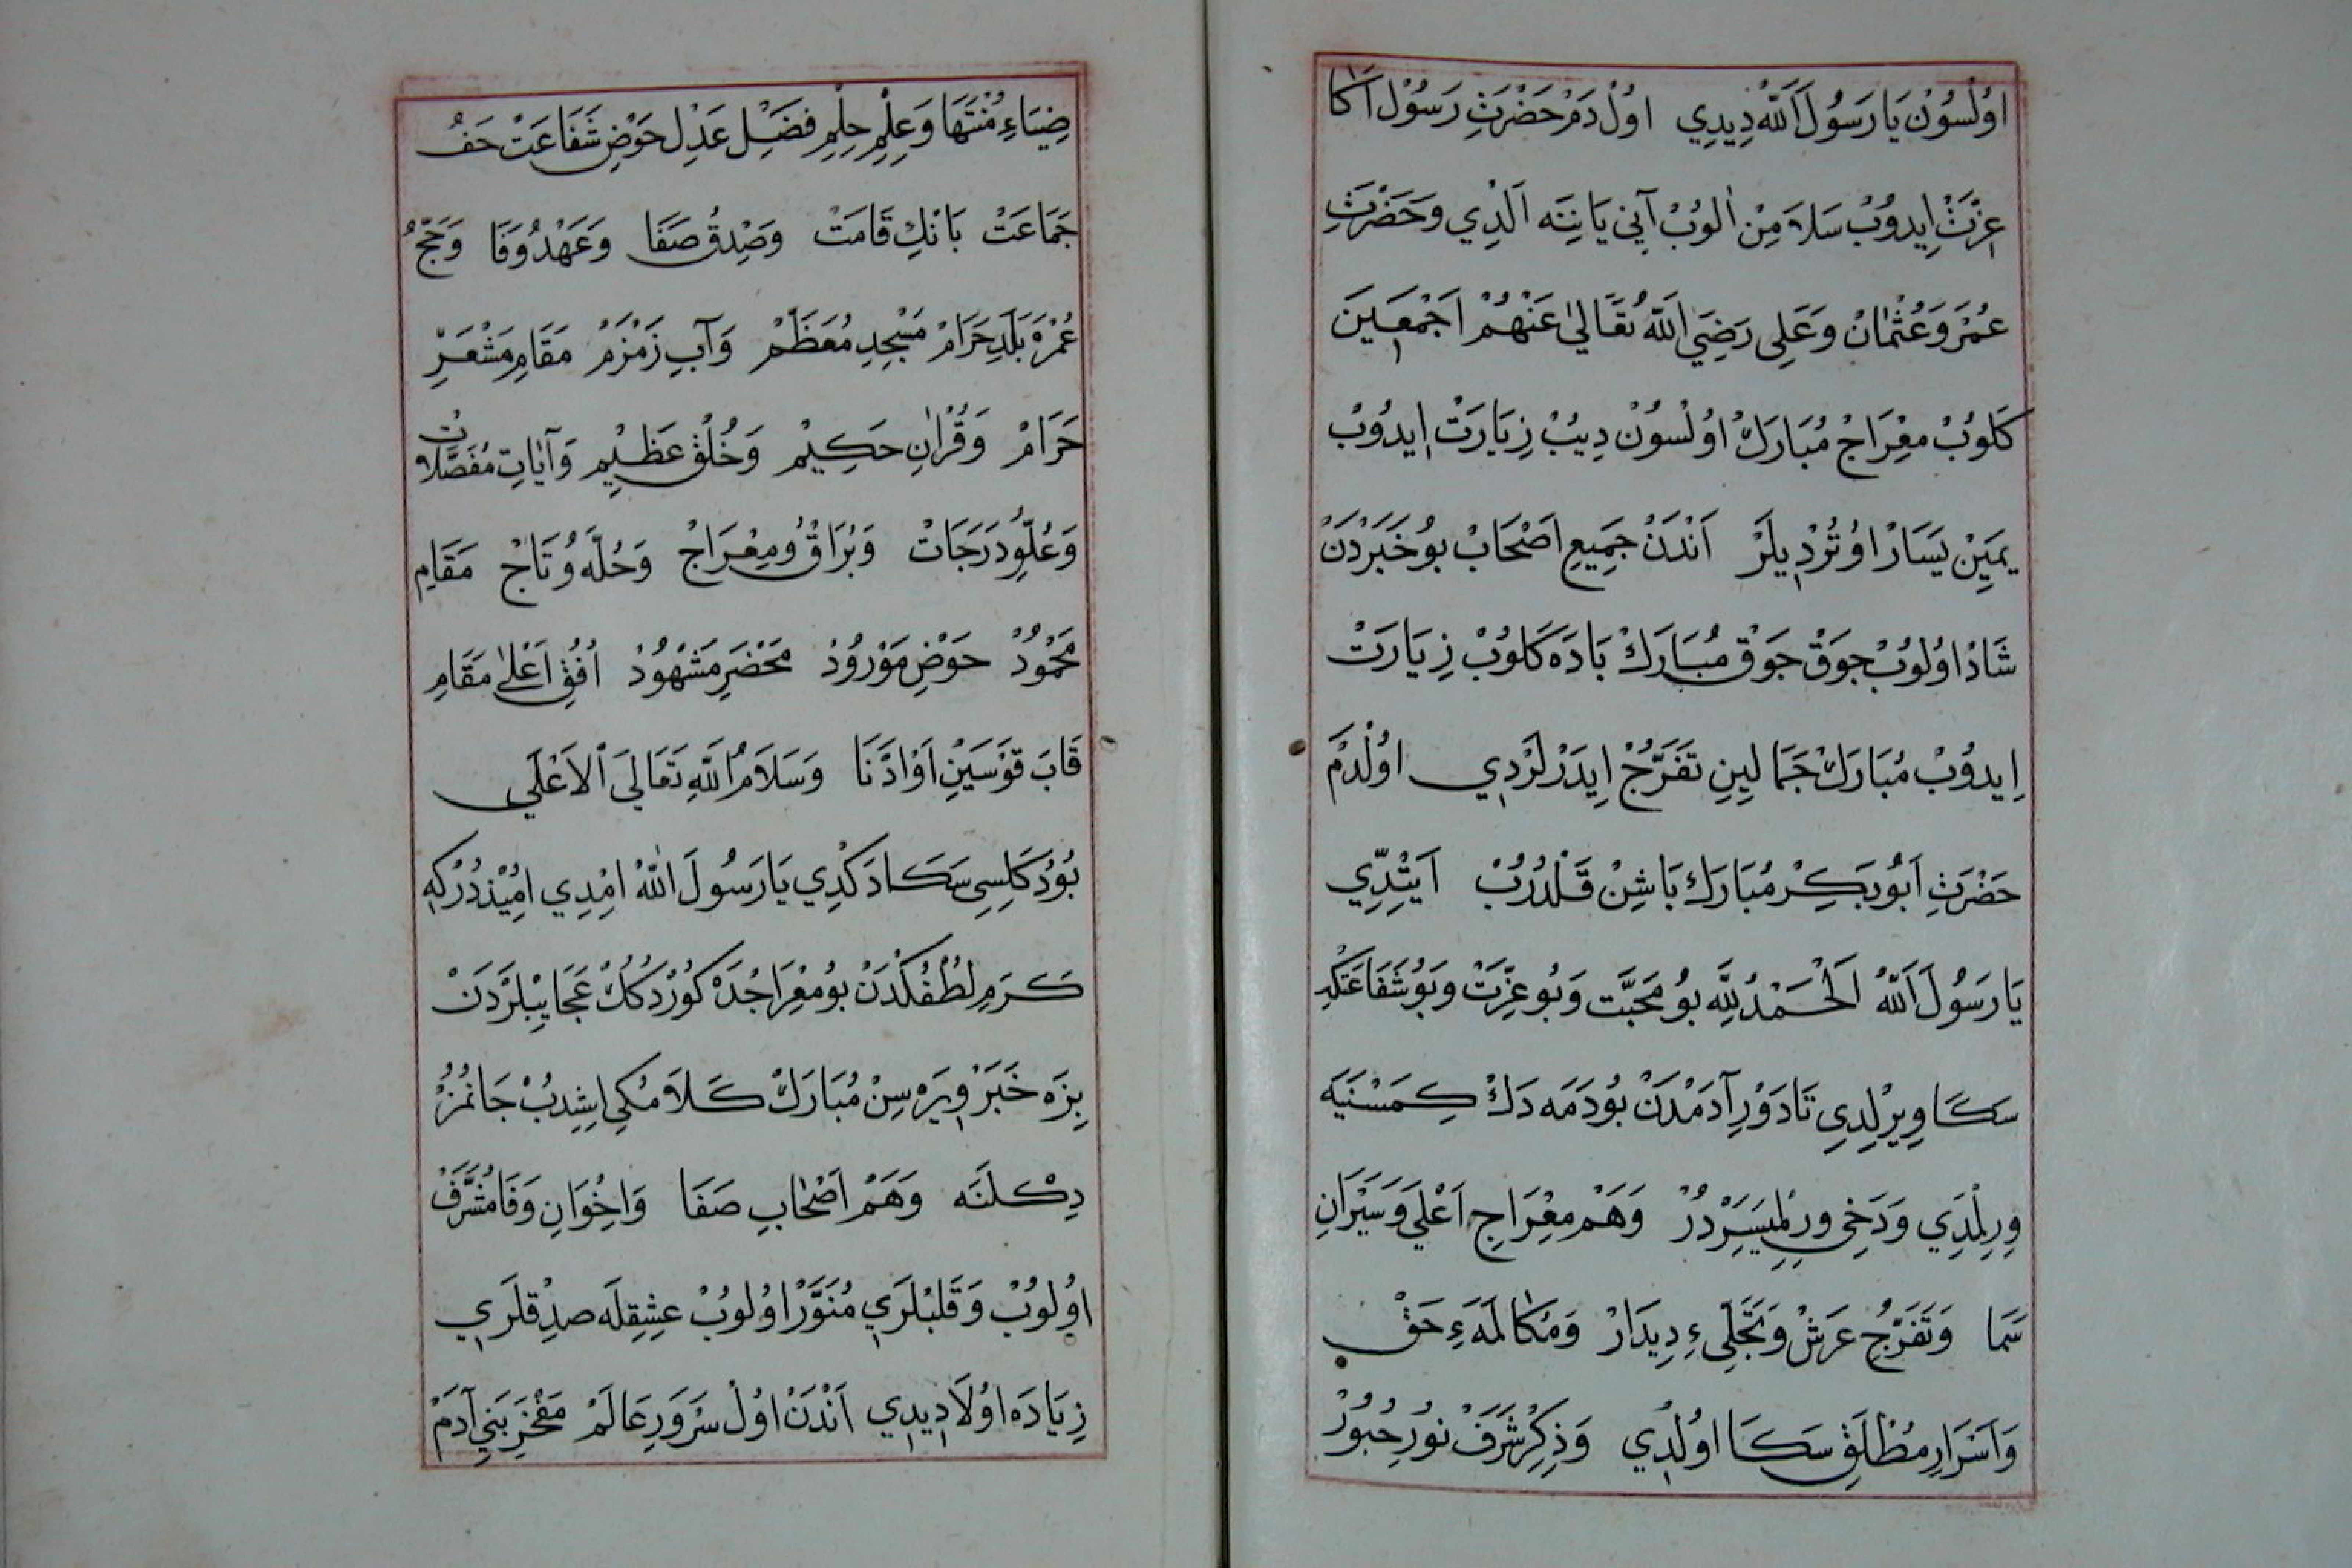 اوُلْسُونْ يَا رَسُولَ اَللّٰهْ دِيدِي اوُلْ دَمْ حَضْرَتِ رَسُولْ اَكَا
عِزَّتْ اِيدوُبْ سَلَامِنْ اٰلوُبْ آنِي يَانِنَه اَلْدِي وَحَضْرَتِ
عُمَرْ وَعُثْمٰانْ وَعَلِى رَضِيَ اَللّٰهُ تَعَالٰي عَنْهُمْ اَجْمَعِينَ
كَلوُبْ مِعْرَاجْ مُبَارَكْ اوُلْسُونْ دِيبْ زِيَارَتْ اِيدوُبْ
يَمِينْ يَسَارْ اوُتُرْدِيلَرْ اَنْدَنْ جَمِيعِ اَصْحَابْ بوُ خَبَرْدَنْ
شَادْ اوُلوُبْ جَوقْ جَوقْ مُبَارَكْ بَادَه كَلوُبْ زِيَارَتْ
اِيدوُبْ مُبَارَكْ جَمَالِينِ تَفَرُّجْ اِيدَرْلَرْدِي اوُلْدَمْ
حَضْرَتِ اَبُو بَكِرْ مُبَارَكْ بَاشِنْ قَلْدُرُبْ اَيِتْدِّي
يَا رَسُولَ اَللّٰهْ اَلْحَمْدُ لِلّٰهِ بوُ مَحَبَّت وَبوُ عِزَّتْ وَبوُ شَفَاعَتْكَه
سَكَا وِيرْلِدِي تَا دَوْرِ آدَمْدَنْ بوُ دَمَه دَكْ كِمَسْنَيَه
وِرِلْمَدِي وَدَخِي وِرِلْمِيسَرْدُرْ وَهَمْ مِعْرَاجِ اَعْلَي وَسَيَرَانِ
سَمَا وَتَفَرُّجِ عَرَشْ وَتَجَلِّىءِ دِيدَارْ وَمُكَالَمَهءِ حَقْ
وَاَسْرَارِ مُطْلَقْ سَكَا اوُلْدِي وَذِكِرْ شَرَفْ نوُرِ حُبوُرْ
ضِيَاءِ مُنْتَهَا وَعِلِمْ حِلِمْ فَضِلْ عَدْلِ حَوْضِ شَفَاعَتْ حَفُ
جَمَاعَتْ بَانْكِ قَامَتْ وَصِدْقُ صَفَا وَعَهْدُ وَفَا وَحَجُّ
عُمْرَه بَلَدِ حَرَامْ مَسْجِدِ مُعَظَّمْ وَآبِ زَمْزَمْ مَقَامِ مَشْعَرِ
حَرَامْ وَقُرْاٰنِ حَكِيمْ وَخُلْقِ عَظِيمْ وَآيَاتِ مُفَصَّلَاتْ
وَعُلُوِّ دَرَجَاتْ وَبُرَاقُ وُ مِعْرَاجْ وَحُلَّه وُ تَاجْ مَقَامِ
مَحْمُودْ حَوْضِ مَوْرُودْ مَحْضَرِ مَشْهُودْ اُفُقِ اَعْلٰي مَقَامِ
قَابَ قَوْسَيْنِ اَوْ اَدْنَا وَسَلَامُ اللّٰهِ تَعَالَى اَلْاَعْلَي
بوُدُكَلِسِي سَكَا دَكْدِي يَا رَسُولَ اَللّٰهْ اِمْدِي اُمِيْذْدُرْكِه
كَرَمِ لُطْفُكْدَنْ بوُ مِعْرَاجْدَه كَوُرْدُكُكْ عَجَايِبْلَرْدَنْ
بِزَه خَبَرْ وِيرَه سِنْ مُبَارَكْ كَلَامُكِي اِشِدِبْ جَانْمُزْ
دِكْلَنَه وَهَمْ اَصْحَابِ صَفَا وَاِخْوَانِ وَفَا مُشَرَّفْ
اوُلوُبْ وَقَلْبْلَرِي مُنَوَّرْ اوُلوُبْ عِشِقِلَه صِدِقْلَرِي
زِيَادَه اوُلَا دِيدِي اَنْدَنْ اوُلْ سَرْوَرِ عَالَمْ مَفْخَرِ بَنِي آدَمْ